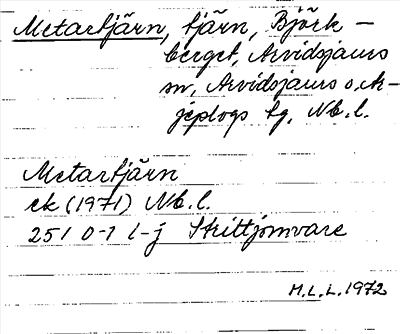 Metartjärn, tjärn, Björk-
berget, Arvidsjaurs
sn, Arvidsjaurs o. Ar-
jeplogs tg, Nb. l.
Metartjärn
ek (1971) Nb. l.
251 0-1 i-j Skittjomvare
M.L.L. 1972